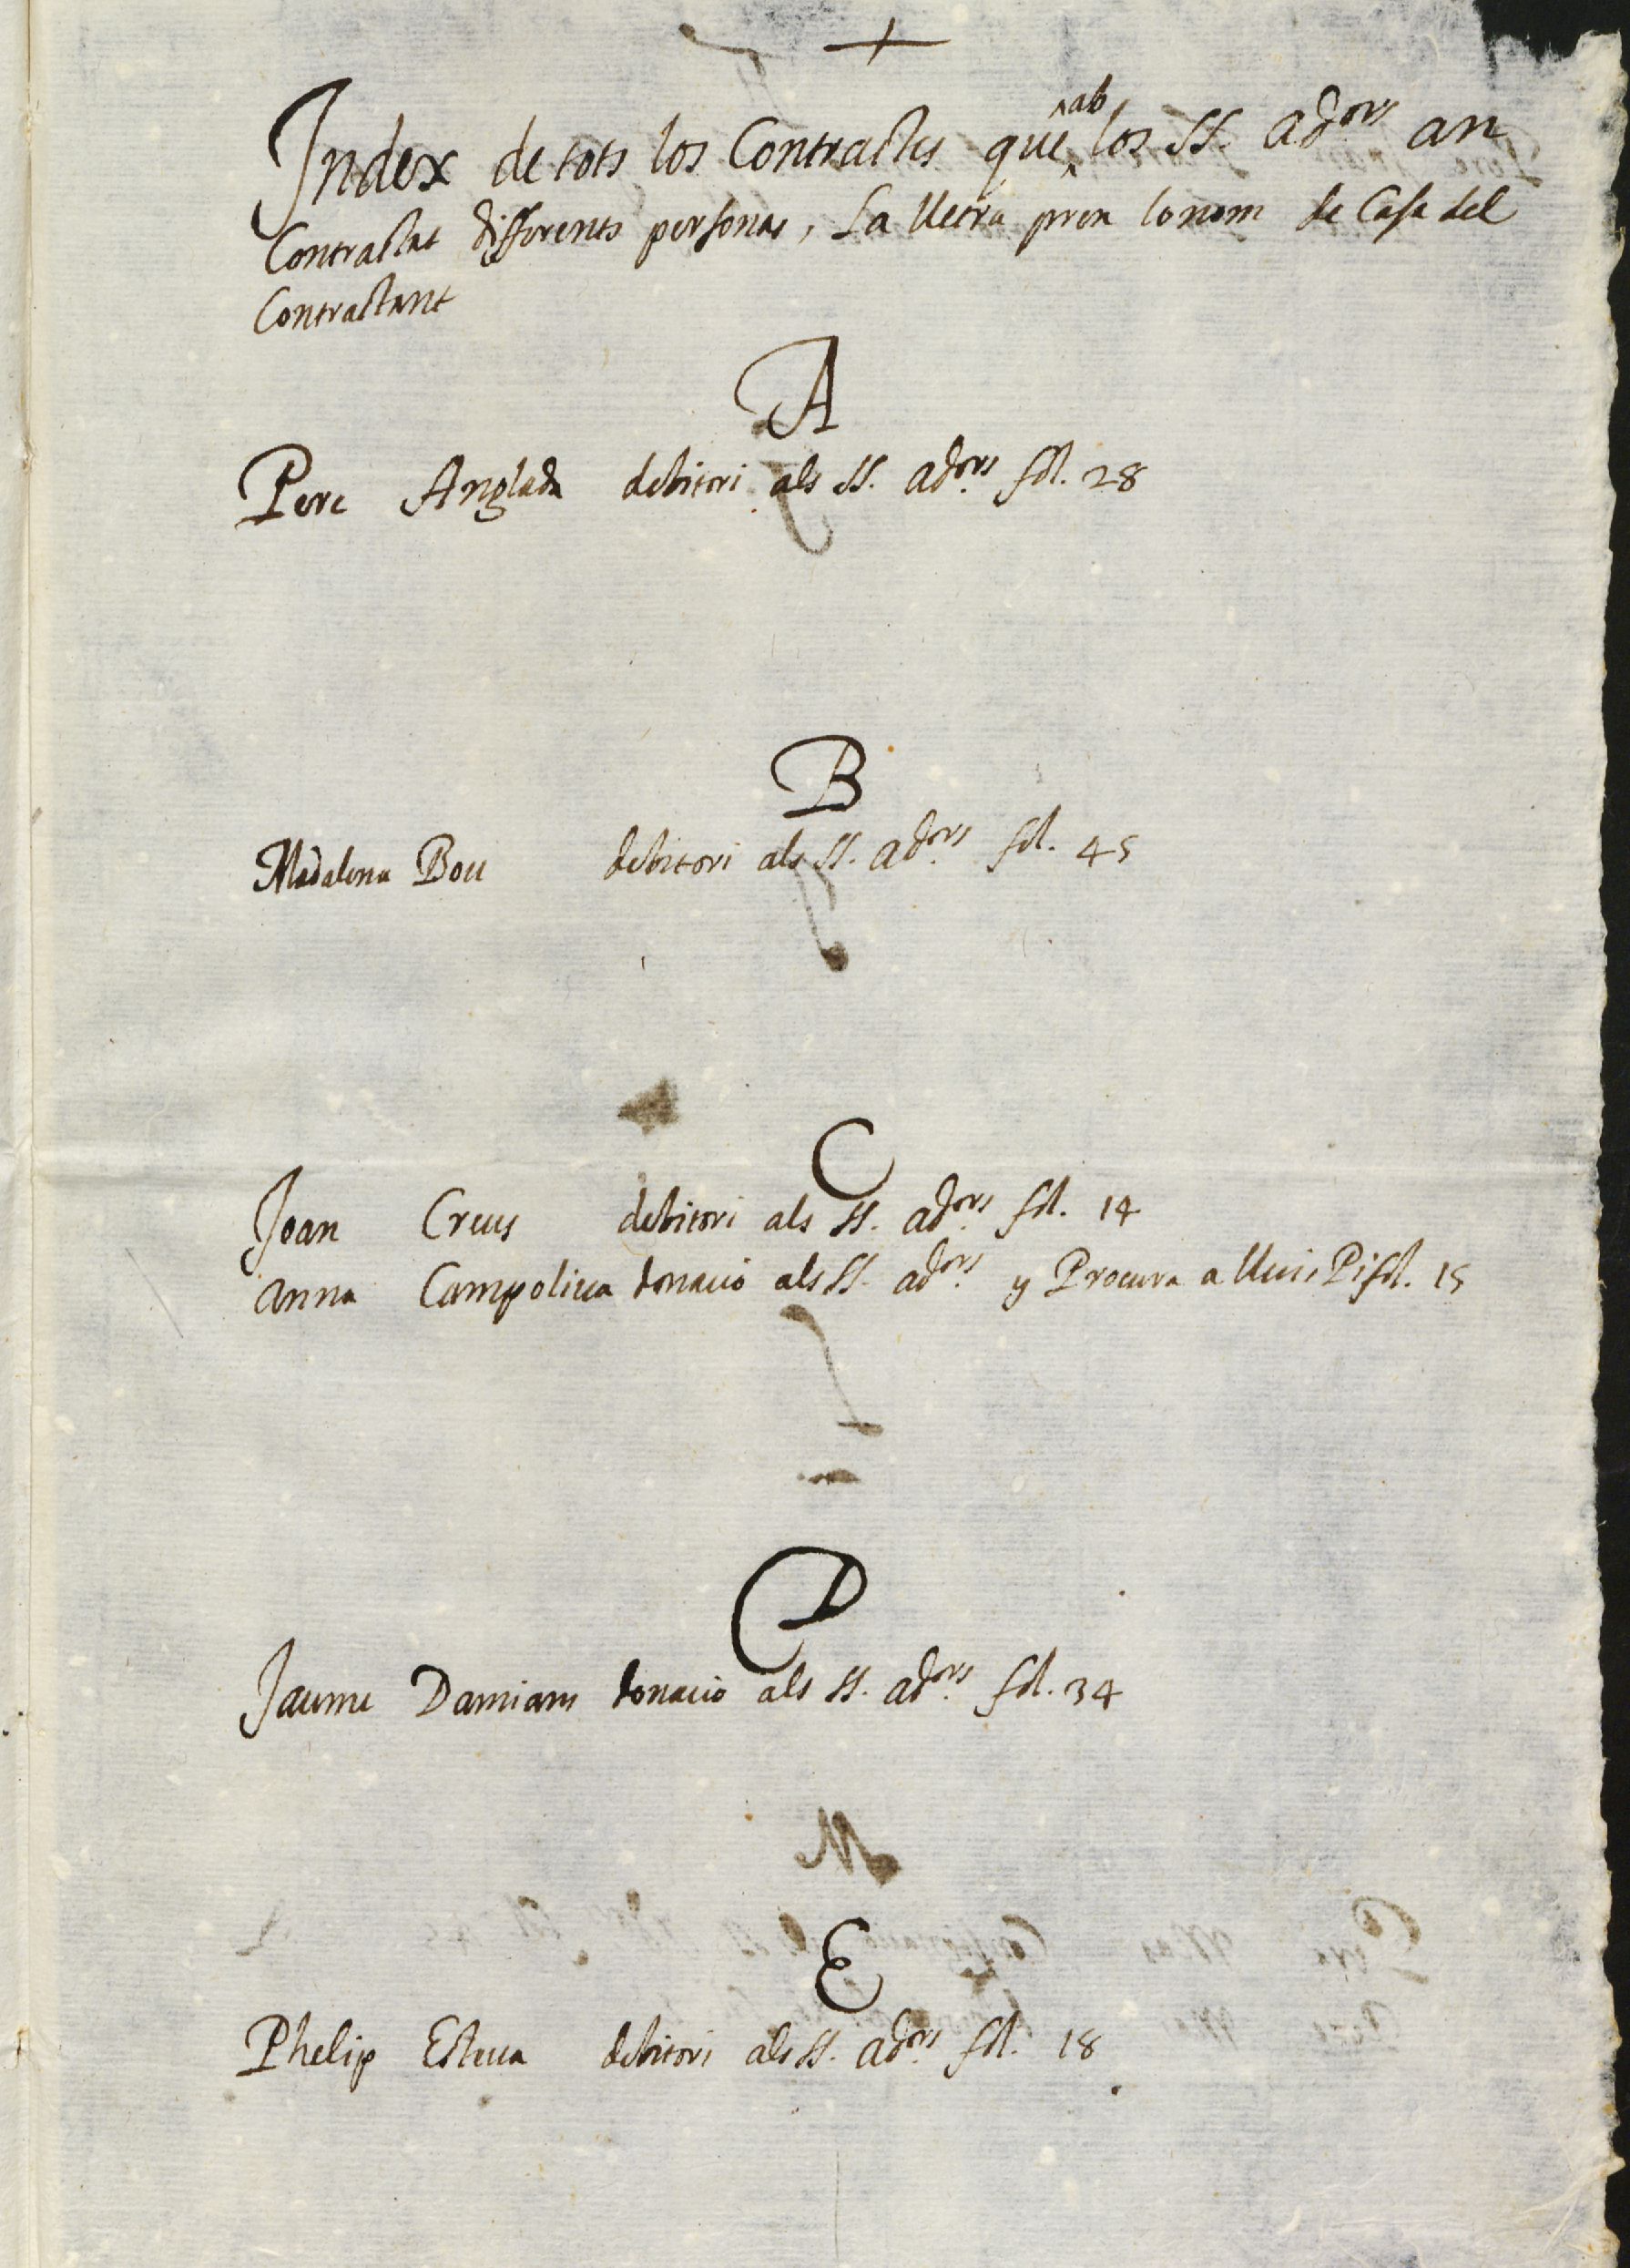 +
Index de tots los Contractes que ^ab los SS. ad.ors an
Contractat differents personas, La lletra pren lo nom de Casa del
Contractant
A
Pere Anglada debitori als SS. ad.ors fol. 28
B
Madalena Bou debitori als SS. ad.ors fol. 45
C
Joan Creus debitori als SS. ad.ors fol. 14
Anna Campoliua donacio als SS. ad.ors y Procura a lluis Pi fol. 15
D
Jaume Damians donacio als SS. ad.ors fol. 34
E
Phelip Esteua debitori als SS. ad.ors fol. 18